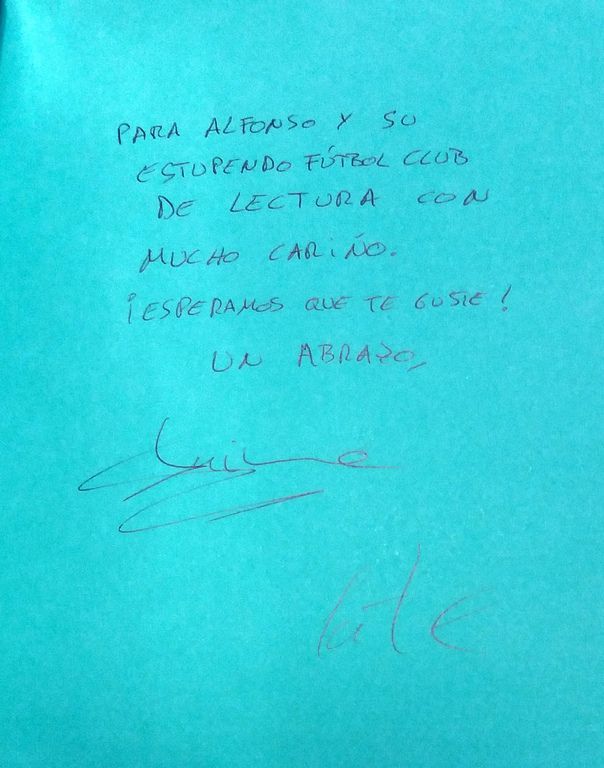 PARA ALFONSO Y SU
ESTUPENDO FÚTBOL CLUB
DE LECTURA CON
MUCHO CARIÑO.
¡ESPERAMOS QUE TE GUSTE!
UN ABRAZO,